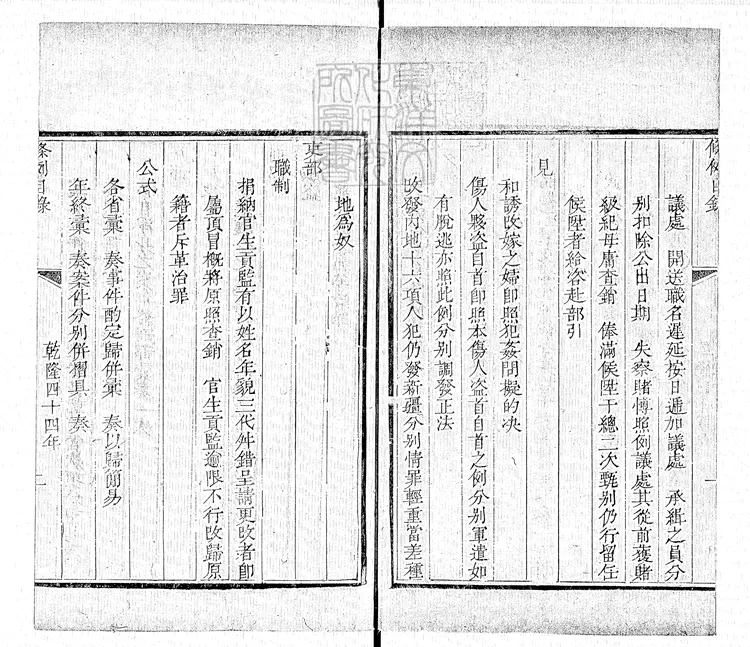 條例目錄
一
議處　開送職名遲延按日遞加議處　承緝之員分
別扣除公出日期　失察賭博照例議處其從前獲賭
級紀毋庸查銷　俸滿候陞千總三次甄別仍行留任
候陞者給咨赴部引
見
和誘改嫁之婦卽照犯姦問擬的决
傷人夥盗自首卽照本傷人盗首自首之例分别軍遣如
有脫逃亦照此例分别調發正法
改發內地十六項人犯仍發新疆分别情罪輕重當差種
地為奴
吏部
職制
捐納官生貢監有以姓名年貌三代舛錯呈請更改者卽
屬頂冒槪將原照查銷　官生貢監逾限不行改歸原
籍者斥革治罪
公式
各省彙　奏事件酌定歸併彙　奏以歸簡易
年終彙　奏案件分别併摺具　奏
條例目錄
乾隆四十四年
二